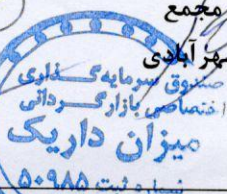 مجمع
مهرآبادی
صندوق سرمایه‌گذاری
اختصاصی بازارگردانی
میزان داریک
شماره ثبت ۵۰۹۸۵